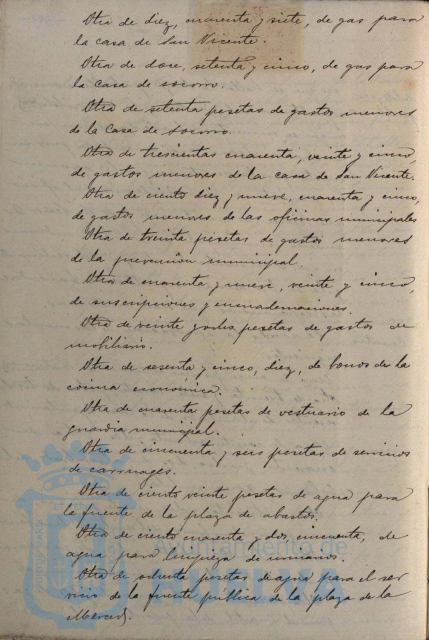 Otra de diez, cuarenta y siete, de gas para
la casa de San Vicente.
Otra de doce, setenta y cinco, de gas para
la casa de socorro.
Otra de setenta pesetas de gastos menores
de la Casa de Socorro.
Otra de trescientas cuarenta, veinte y cinco,
de gastos menores de la casa de San Vicente.
Otra de ciento diez y nueve, cuarenta y cinco,
de gastos menores de las oficinas municipales
Otra de treinta pesetas de gastos menores
de la prevención municipal.
Otra de cuarenta y nueve, veinte y cinco,
de suscripciones y encuadernaciones.
Otra de veinte y ocho pesetas de gastos de
mobiliario.
Otra de sesenta y cinco, diez, de bonos de la
cocina económica.
Otra de cuarenta pesetas de vestuario de la
guardia municipal.
Otra de cincuenta y seis pesetas de servicios
de carruages.
Otra de ciento veinte pesetas de agua para
la fuente de la plaza de abastos.
Otra de ciento cuarenta y dos, cincuenta, de
agua para limpieza de urinarios.
Otra de ochenta pesetas de agua para el ser
vicio de la fuente pública de la plaza de la
Merced.
Ayuntamiento de